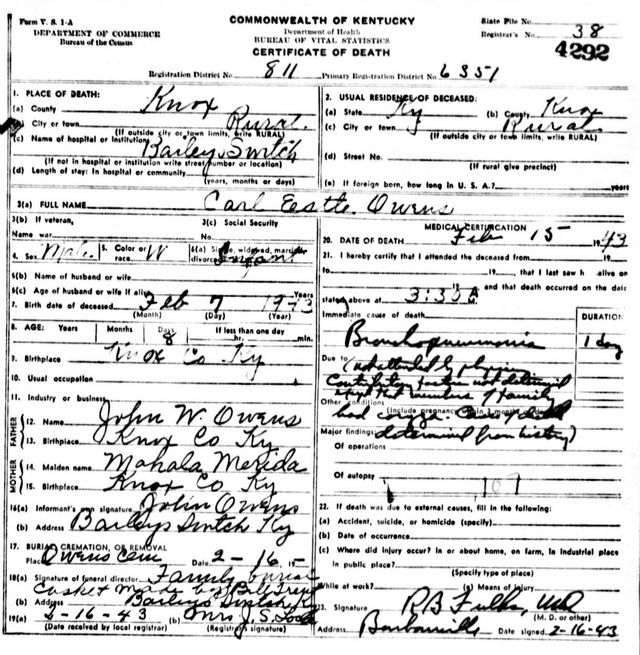 Form V. S. 1-A
DEPARTMENT OF COMMERCE
Bureau of the Census
COMMONWEALTH OF KENTUCKY
Department of Health
BUREAU OF VITAL STATISTICS
CERTIFICATE OF DEATH
State File No.
Registrar's No. 38
4292
Registration District No. 811 Primary Registration District No. 6351
1. PLACE OF DEATH:
(a) County Knox
(b) City or town Rural
(If outside city or town limits, write RURAL)
(c) Name of hospital or institution Baileys Switch
(If not in hospital or institution write street number or location)
(d) Length of stay: In hospital or community
(years, months or days)
2. USUAL RESIDENCE OF DECEASED:
(a) State Ky (b) County Knox
(c) City or town Rural
(If outside city or town limits, write RURAL)
(d) Street No.
(If rural give precinct)
(e) If foreign born, how long in U. S. A.? years
3(a) FULL NAME Carl Estle Owens
3(b) If veteran, 3(c) Social Security
Name war No.
4. Sex Male 5. Color or race W 6(a) Single, widowed, married, divorced Infant
6(b) Name of husband or wife
6(c) Age of husband or wife if alive Years
7. Birth date of deceased Feb 7 1943
(Month) (Day) (Year)
8. AGE: Years Months Days If less than one day
8 hr. min.
9. Birthplace Knox Co Ky
10. Usual occupation
11. Industry or business
FATHER
12. Name John W. Owens
13. Birthplace Knox Co Ky
MOTHER
14. Maiden name Mahala Merida
15. Birthplace Knox Co Ky
16(a) Informant's own signature John Owens
(b) Address Baileys Switch Ky
17. BURIAL, CREMATION, OR REMOVAL
Place Owens Cem Date 2-16
18(a) Signature of funeral director Family burial
Casket made by Bill
(b) Address Baileys Switch Ky
19(a) 2-16-43 (b) Mrs J. S.
(Date received by local registrar) (Registrar's signature)
MEDICAL CERTIFICATION
20. DATE OF DEATH Feb 15 1943
21. I hereby certify that I attended the deceased from
19 to 19, that I last saw h alive on
19, and that death occurred on the date
stated above at 3:30 A M
Immediate cause of death DURATION
Bronchopneumonia 1 day
Due to (not attended by physician
Contributory factors not determined
except that members of family
Other conditions
(Include pregnancy within 3 months of death)
had
Major findings: determined from history)
Of operations
Of autopsy
107
22. If death was due to external causes, fill in the following:
(a) Accident, suicide, or homicide (specify)
(b) Date of occurrence
(c) Where did injury occur? in or about home, on farm, in industrial place
in public place?
(Specify type of place)
While at work? (e) Means of injury
23. Signature RB Fulks, MD
(M. D. or other)
Address Barbourville Date signed 2-16-43